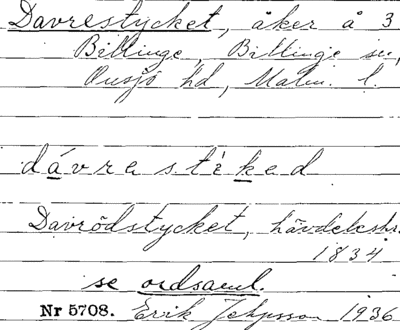 Davrestycket, åker å 3
Billinge, Billinge sn,
Onsjö hd, Malm. l.
dávrastìked
Davrödstycket, hävdebeskr.
1834
se ordsaml.
Nr 5708. Erik Jeppsson 1936